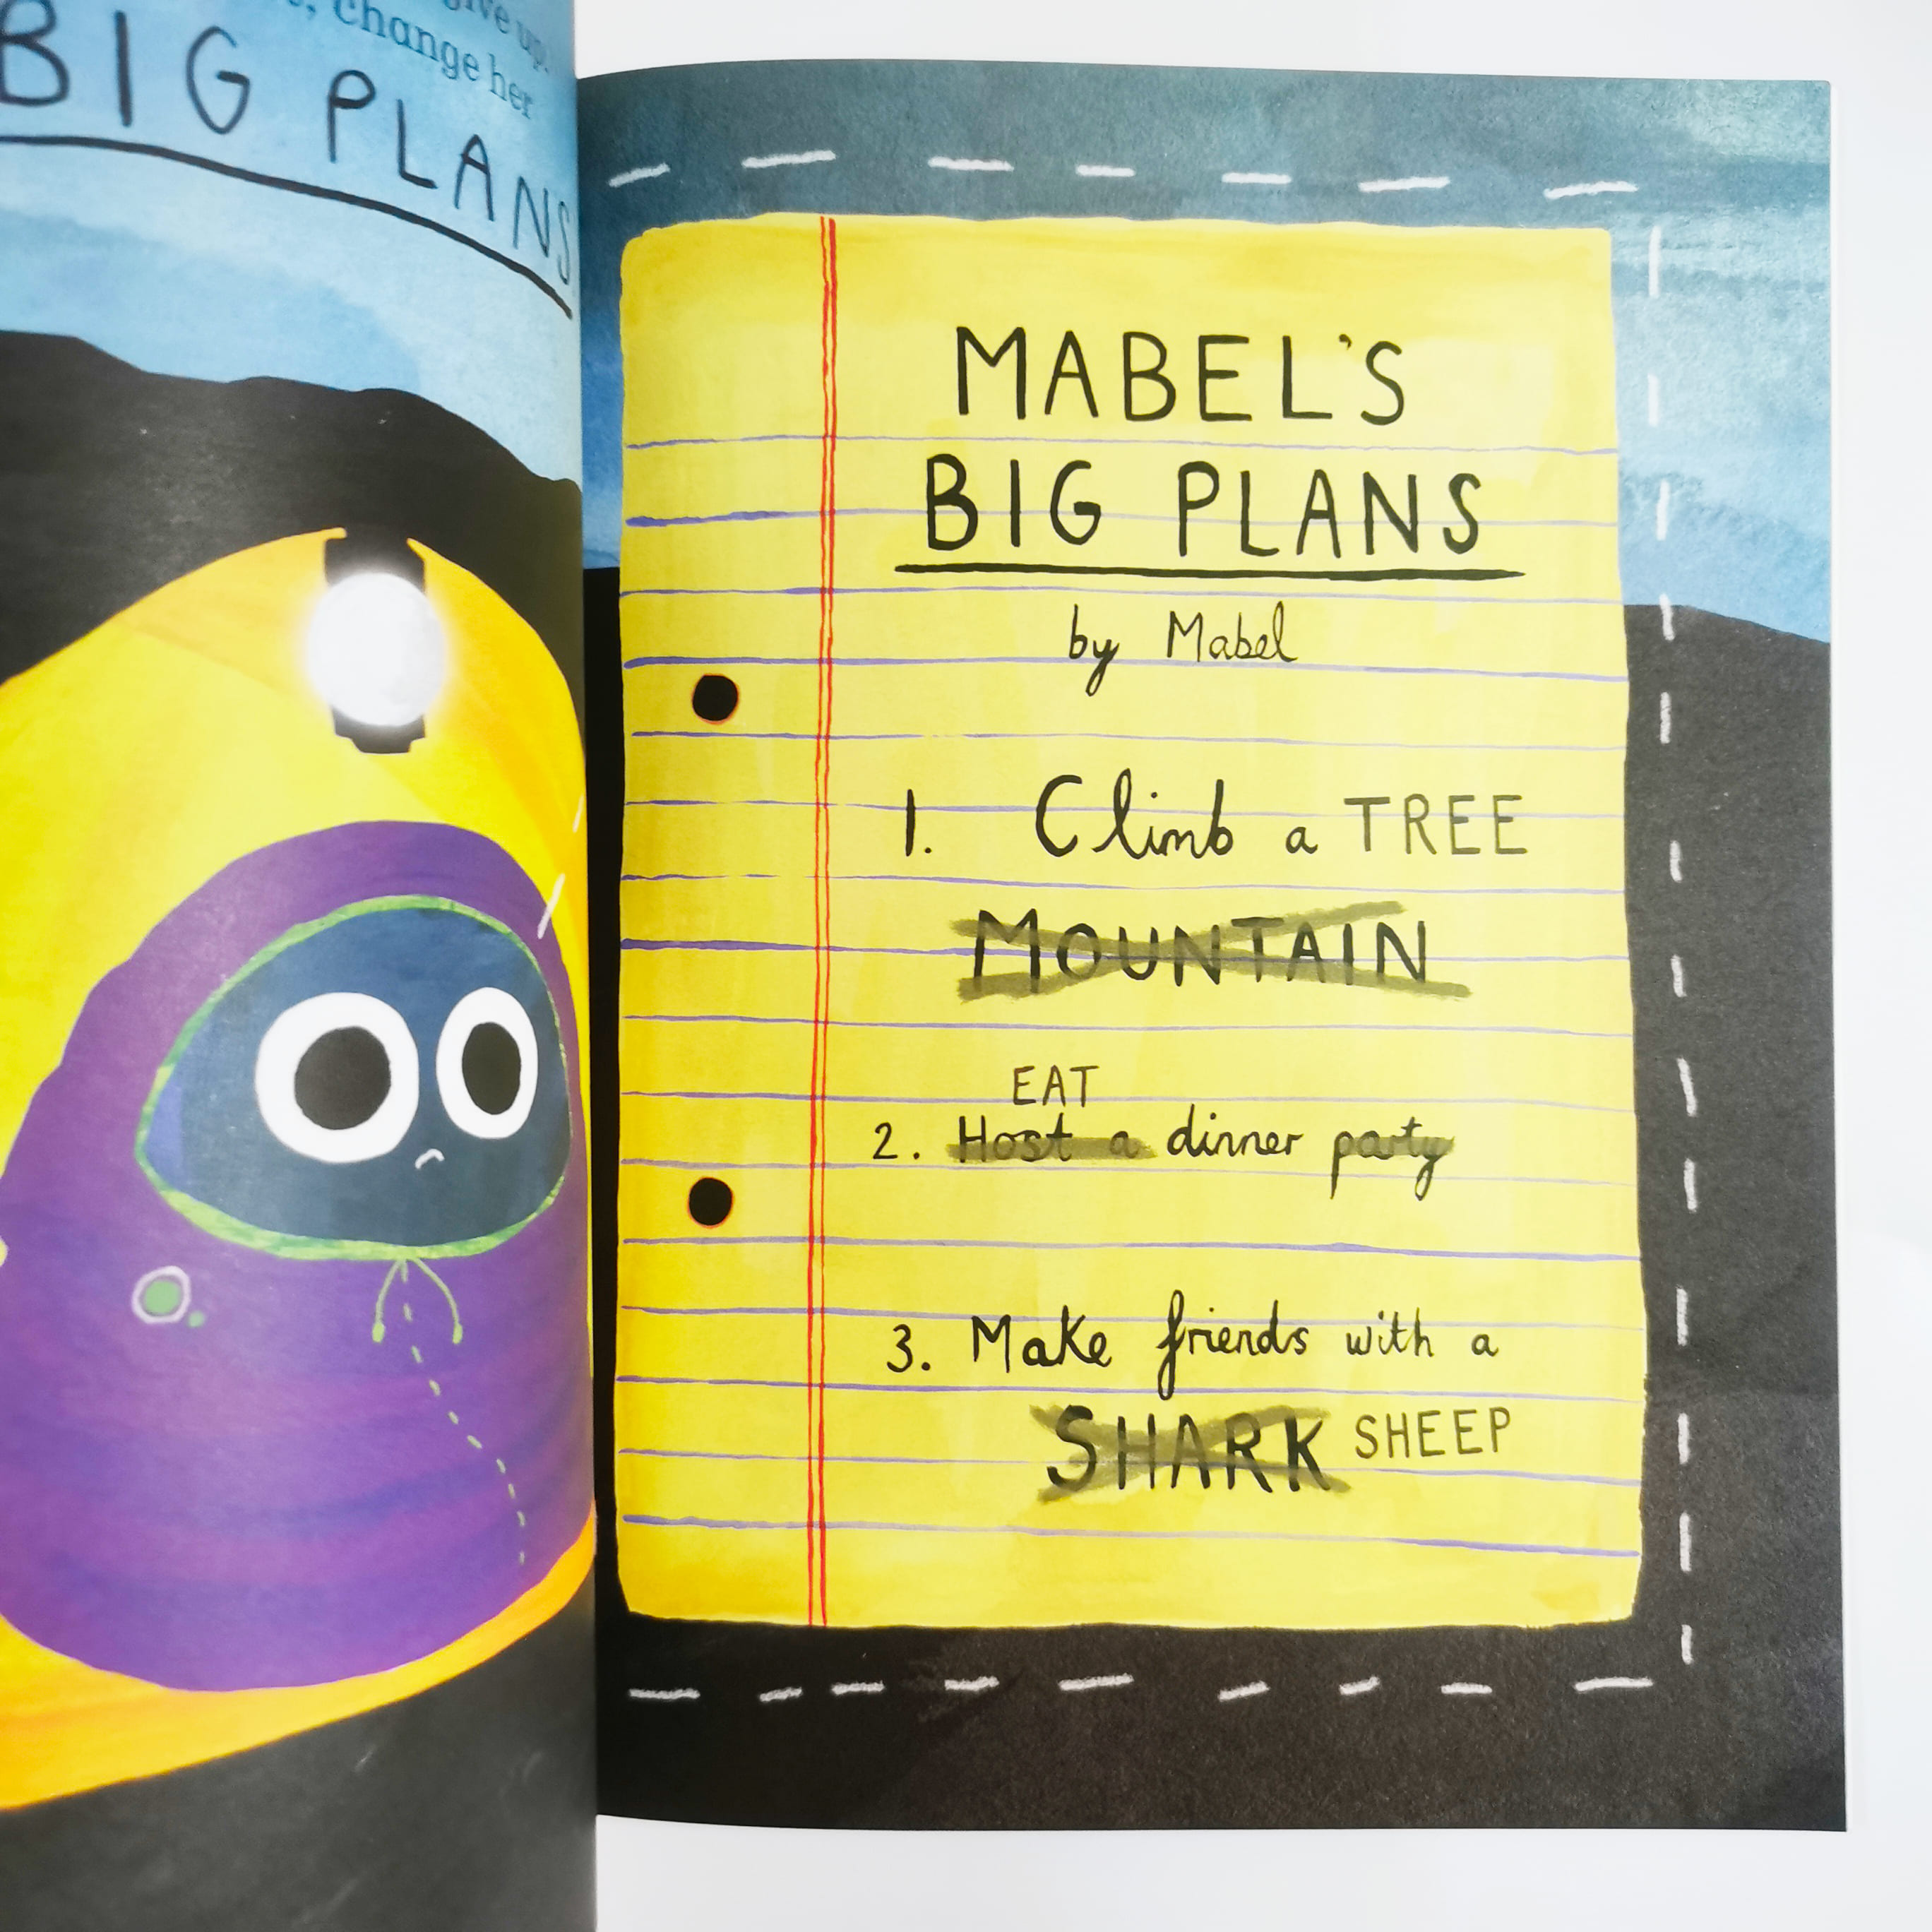 give up.
change her
BIG PLANS
MABEL'S
BIG PLANS
by Mabel
1. Climb a TREE
MOUNTAIN
EAT
2. Host a dinner party
3. Make friends with a
SHARK SHEEP